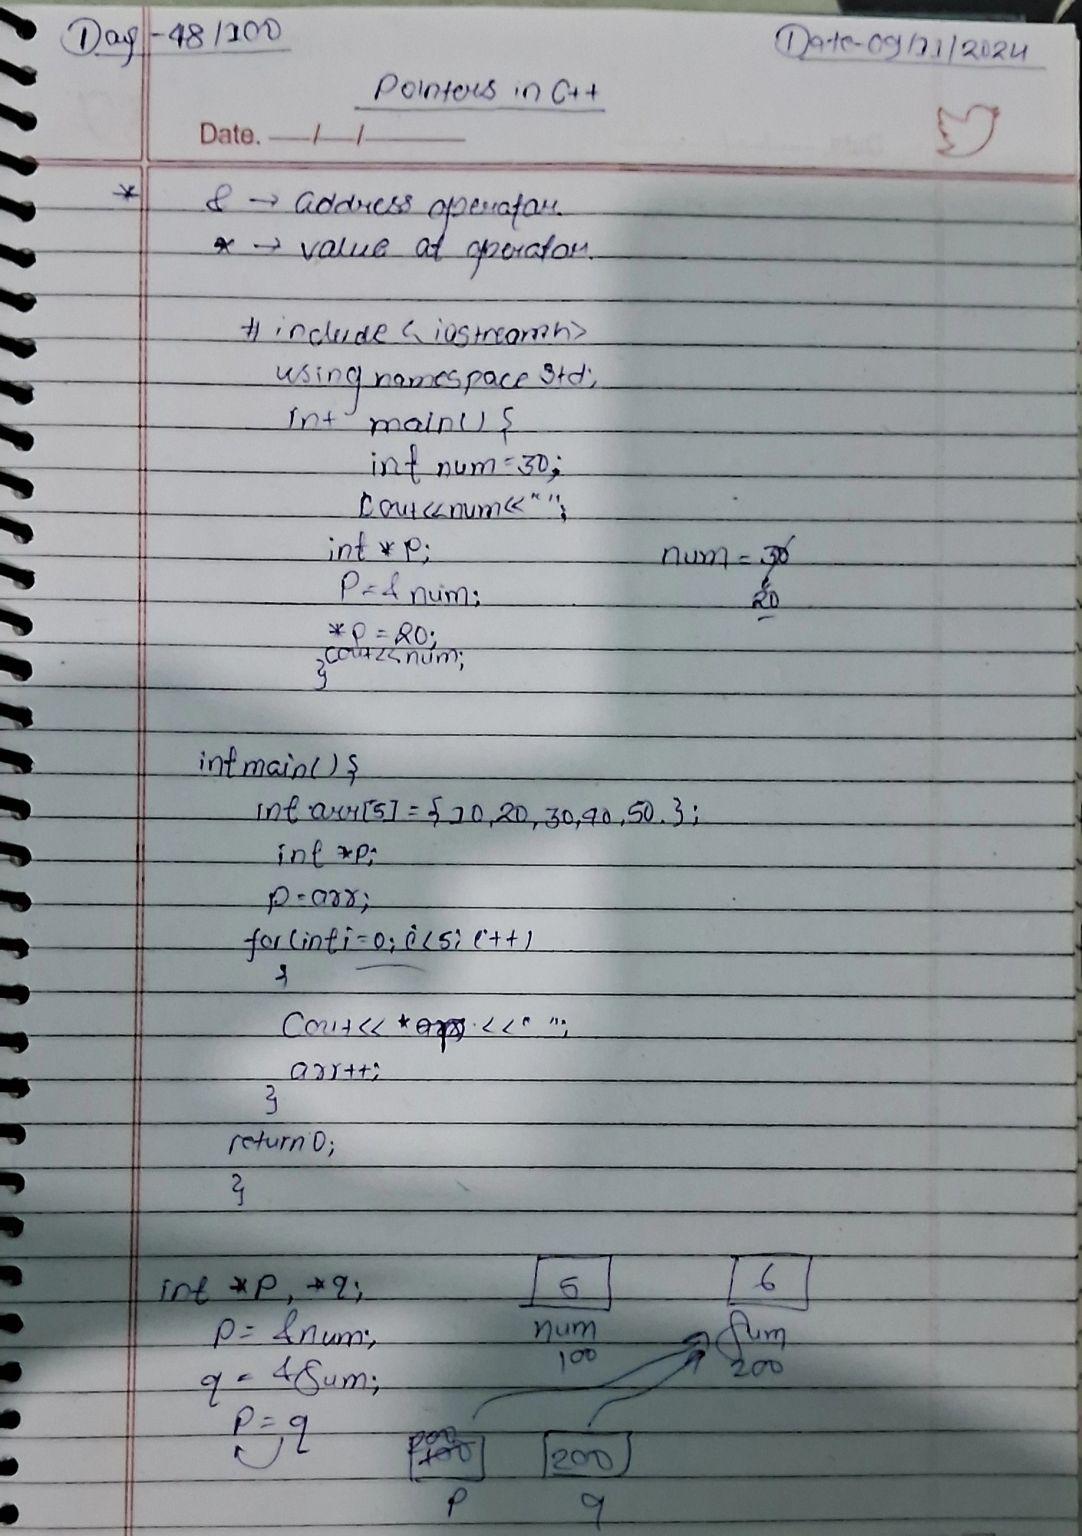 Day-48/100
Date-09/11/2024
Pointers in C++
Date. __/__/____
* & → address operator.
* → value at operator.
# include <iostream.h>
using namespace std;
int main() {
int num=30;
Cout<<num<<" ";
int *p;
num = 30
P=& num;
20
*p = 20;
cout<<num;
}
int main() {
int arr[5] = {10,20,30,40,50.};
int *p;
p=arr;
for(int i=0; i<5; i++)
{
Cout<< * <<" ";
arr++;
}
return 0;
}
int *p, *q;
5
6
p= &num;
num
sum
100
200
q = &sum;
P=q
200
100
200
p
q